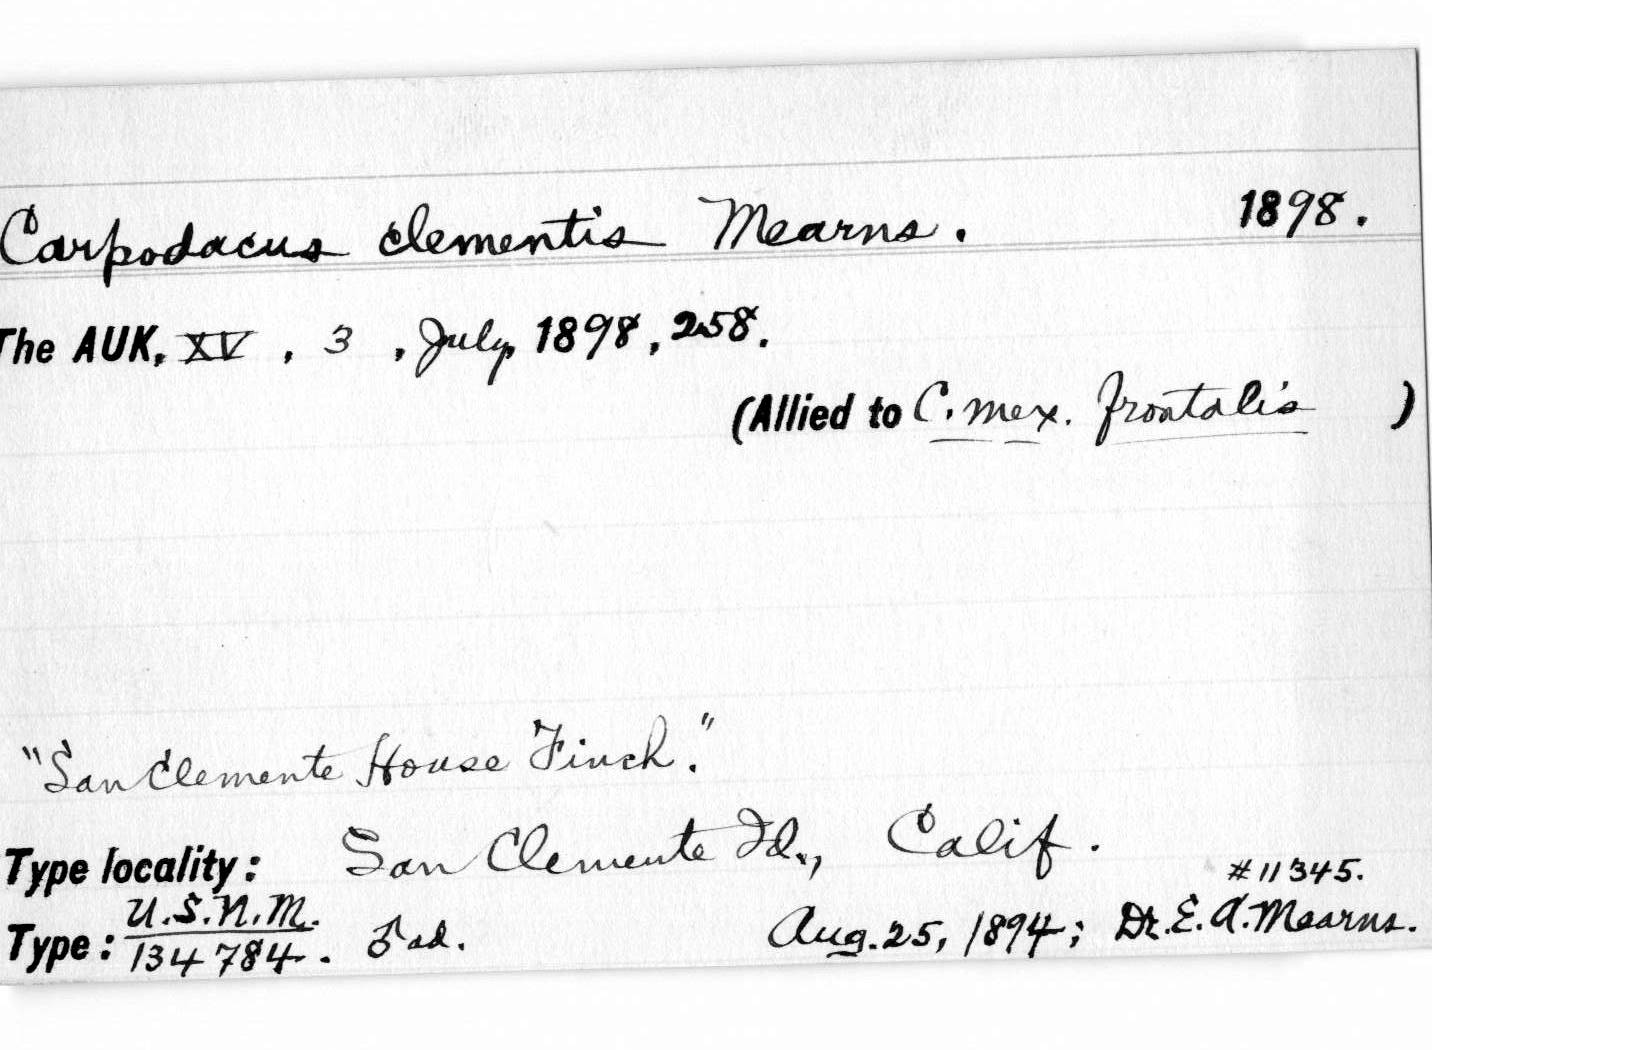 Carpodacus clementis Mearns. 1898.
The AUK, XV, 3, July, 1898, 258.
(Allied to C. mex. frontalis )
"San Clemente House Finch."
Type locality: San Clemente Id., Calif.
#11345.
Type: U.S.N.M. 134784. ♂ ad. Aug. 25, 1894; Dr. E. A. Mearns.